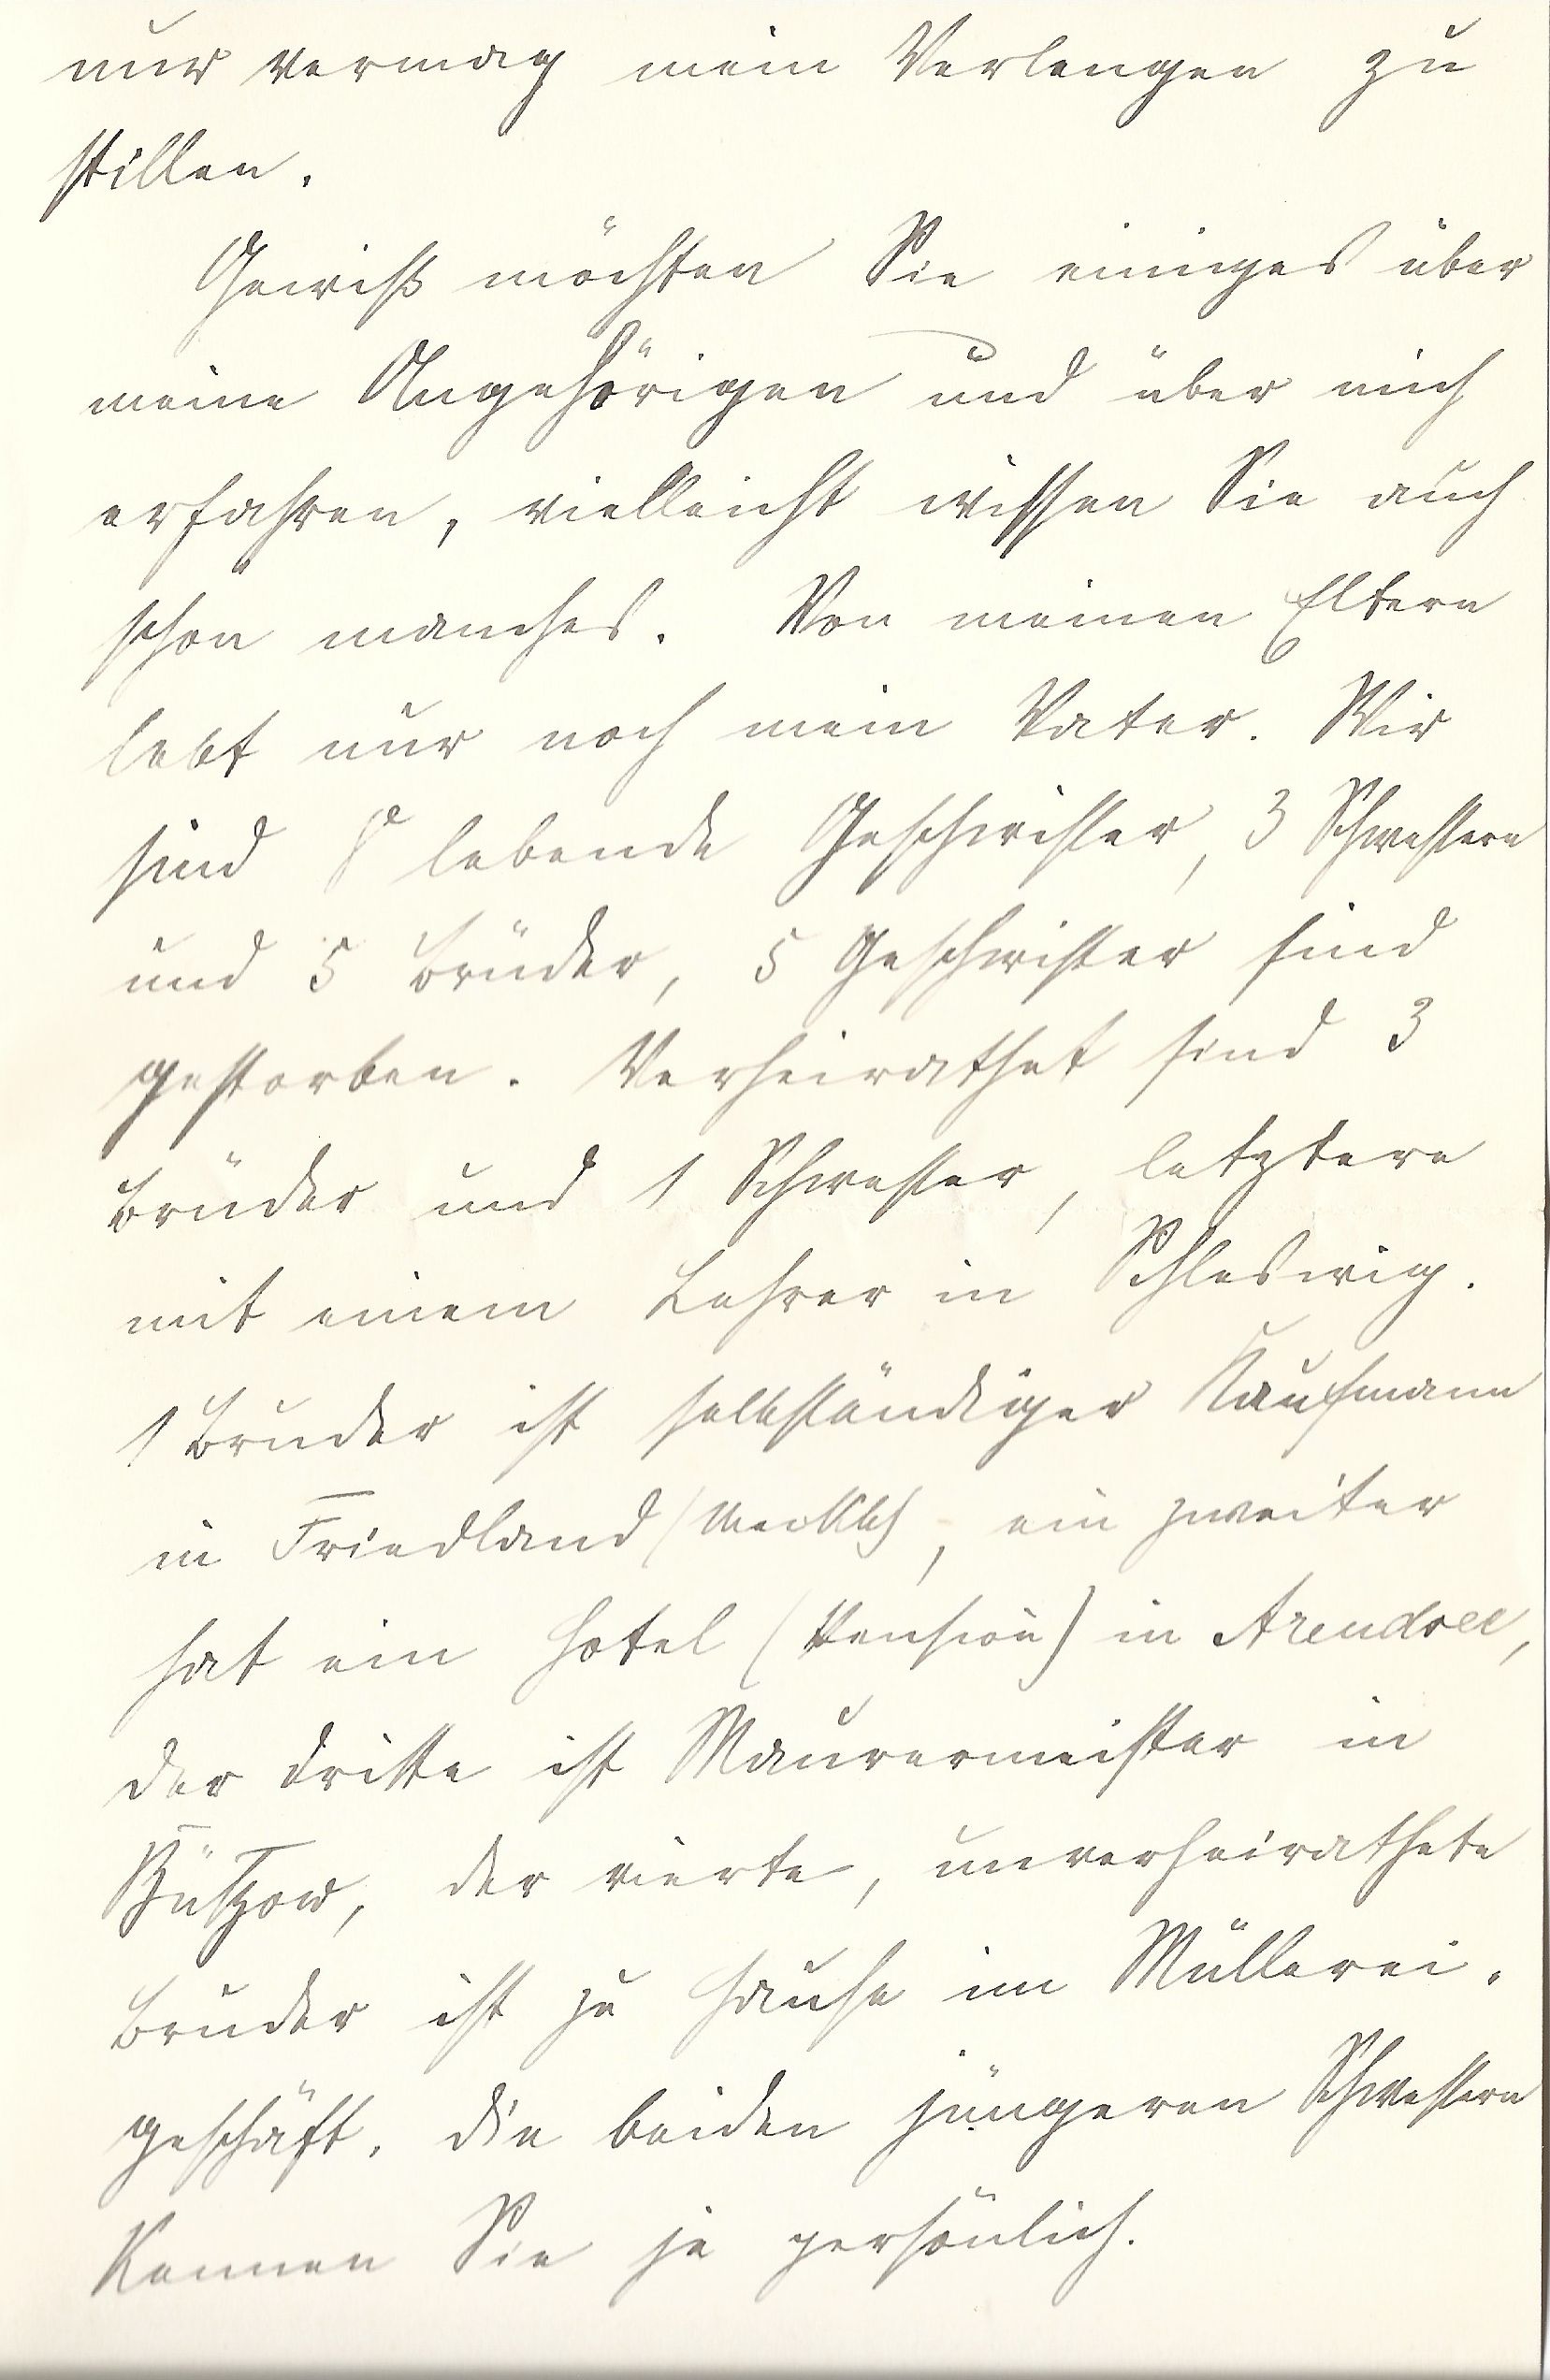 nur vermag mein Verlangen zu
stillen.
Gewiß möchten Sie einiges über
meine Angehörigen und über mich
erfahren, vielleicht wissen Sie auch
schon manches. Von meinen Eltern
lebt nur noch mein Vater. Wir
sind 8 lebende Geschwister, 3 Schwestern
und 5 Brüder, 5 Geschwister sind
gestorben. Verheirathet sind 3
Brüder und 1 Schwester, letztere
mit einem Lehrer in Schleswig.
1 Bruder ist selbständiger Kaufmann
in Friedland (Mecklb), ein zweiter
hat ein Hotel (Pension) in Arendsee,
der dritte ist Maurermeister in
Bützow, der vierte, unverheirathete
Bruder ist zu Hause im Müllerei-
geschäft. Die beiden jüngeren Schwestern
kennen Sie ja persönlich.